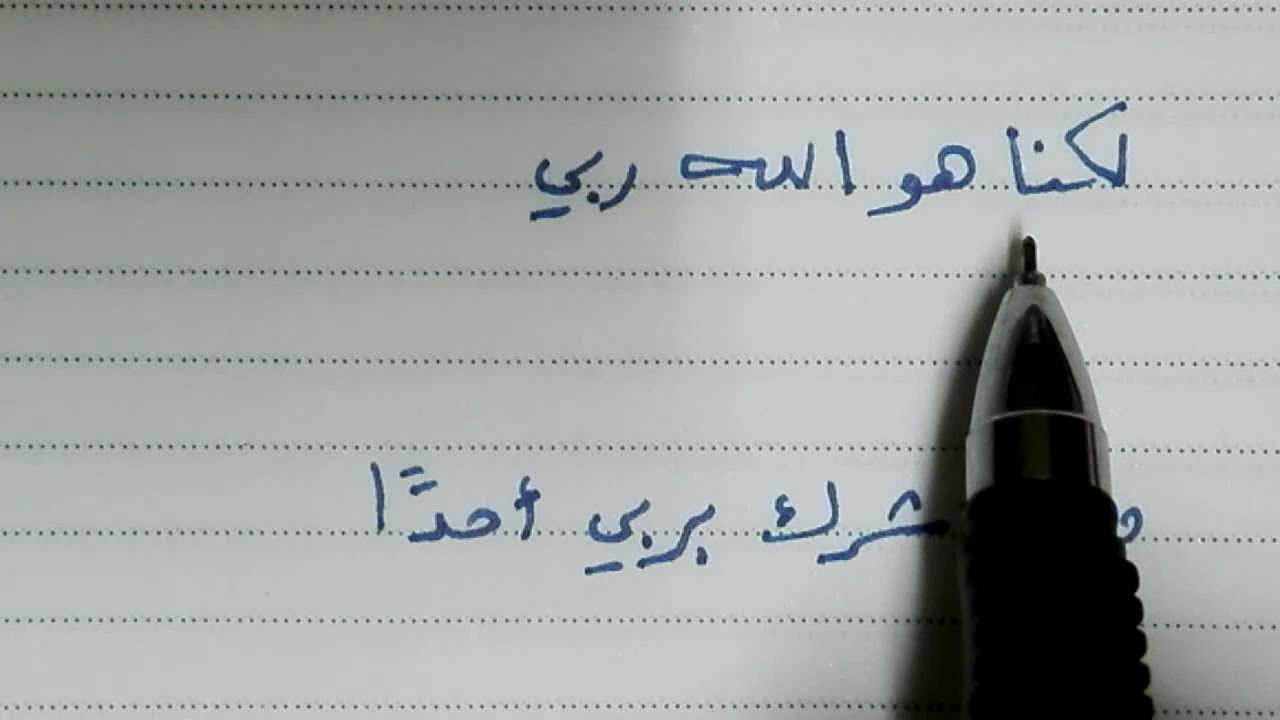 لكنا هو الله ربي
شرك بربي أحدًا